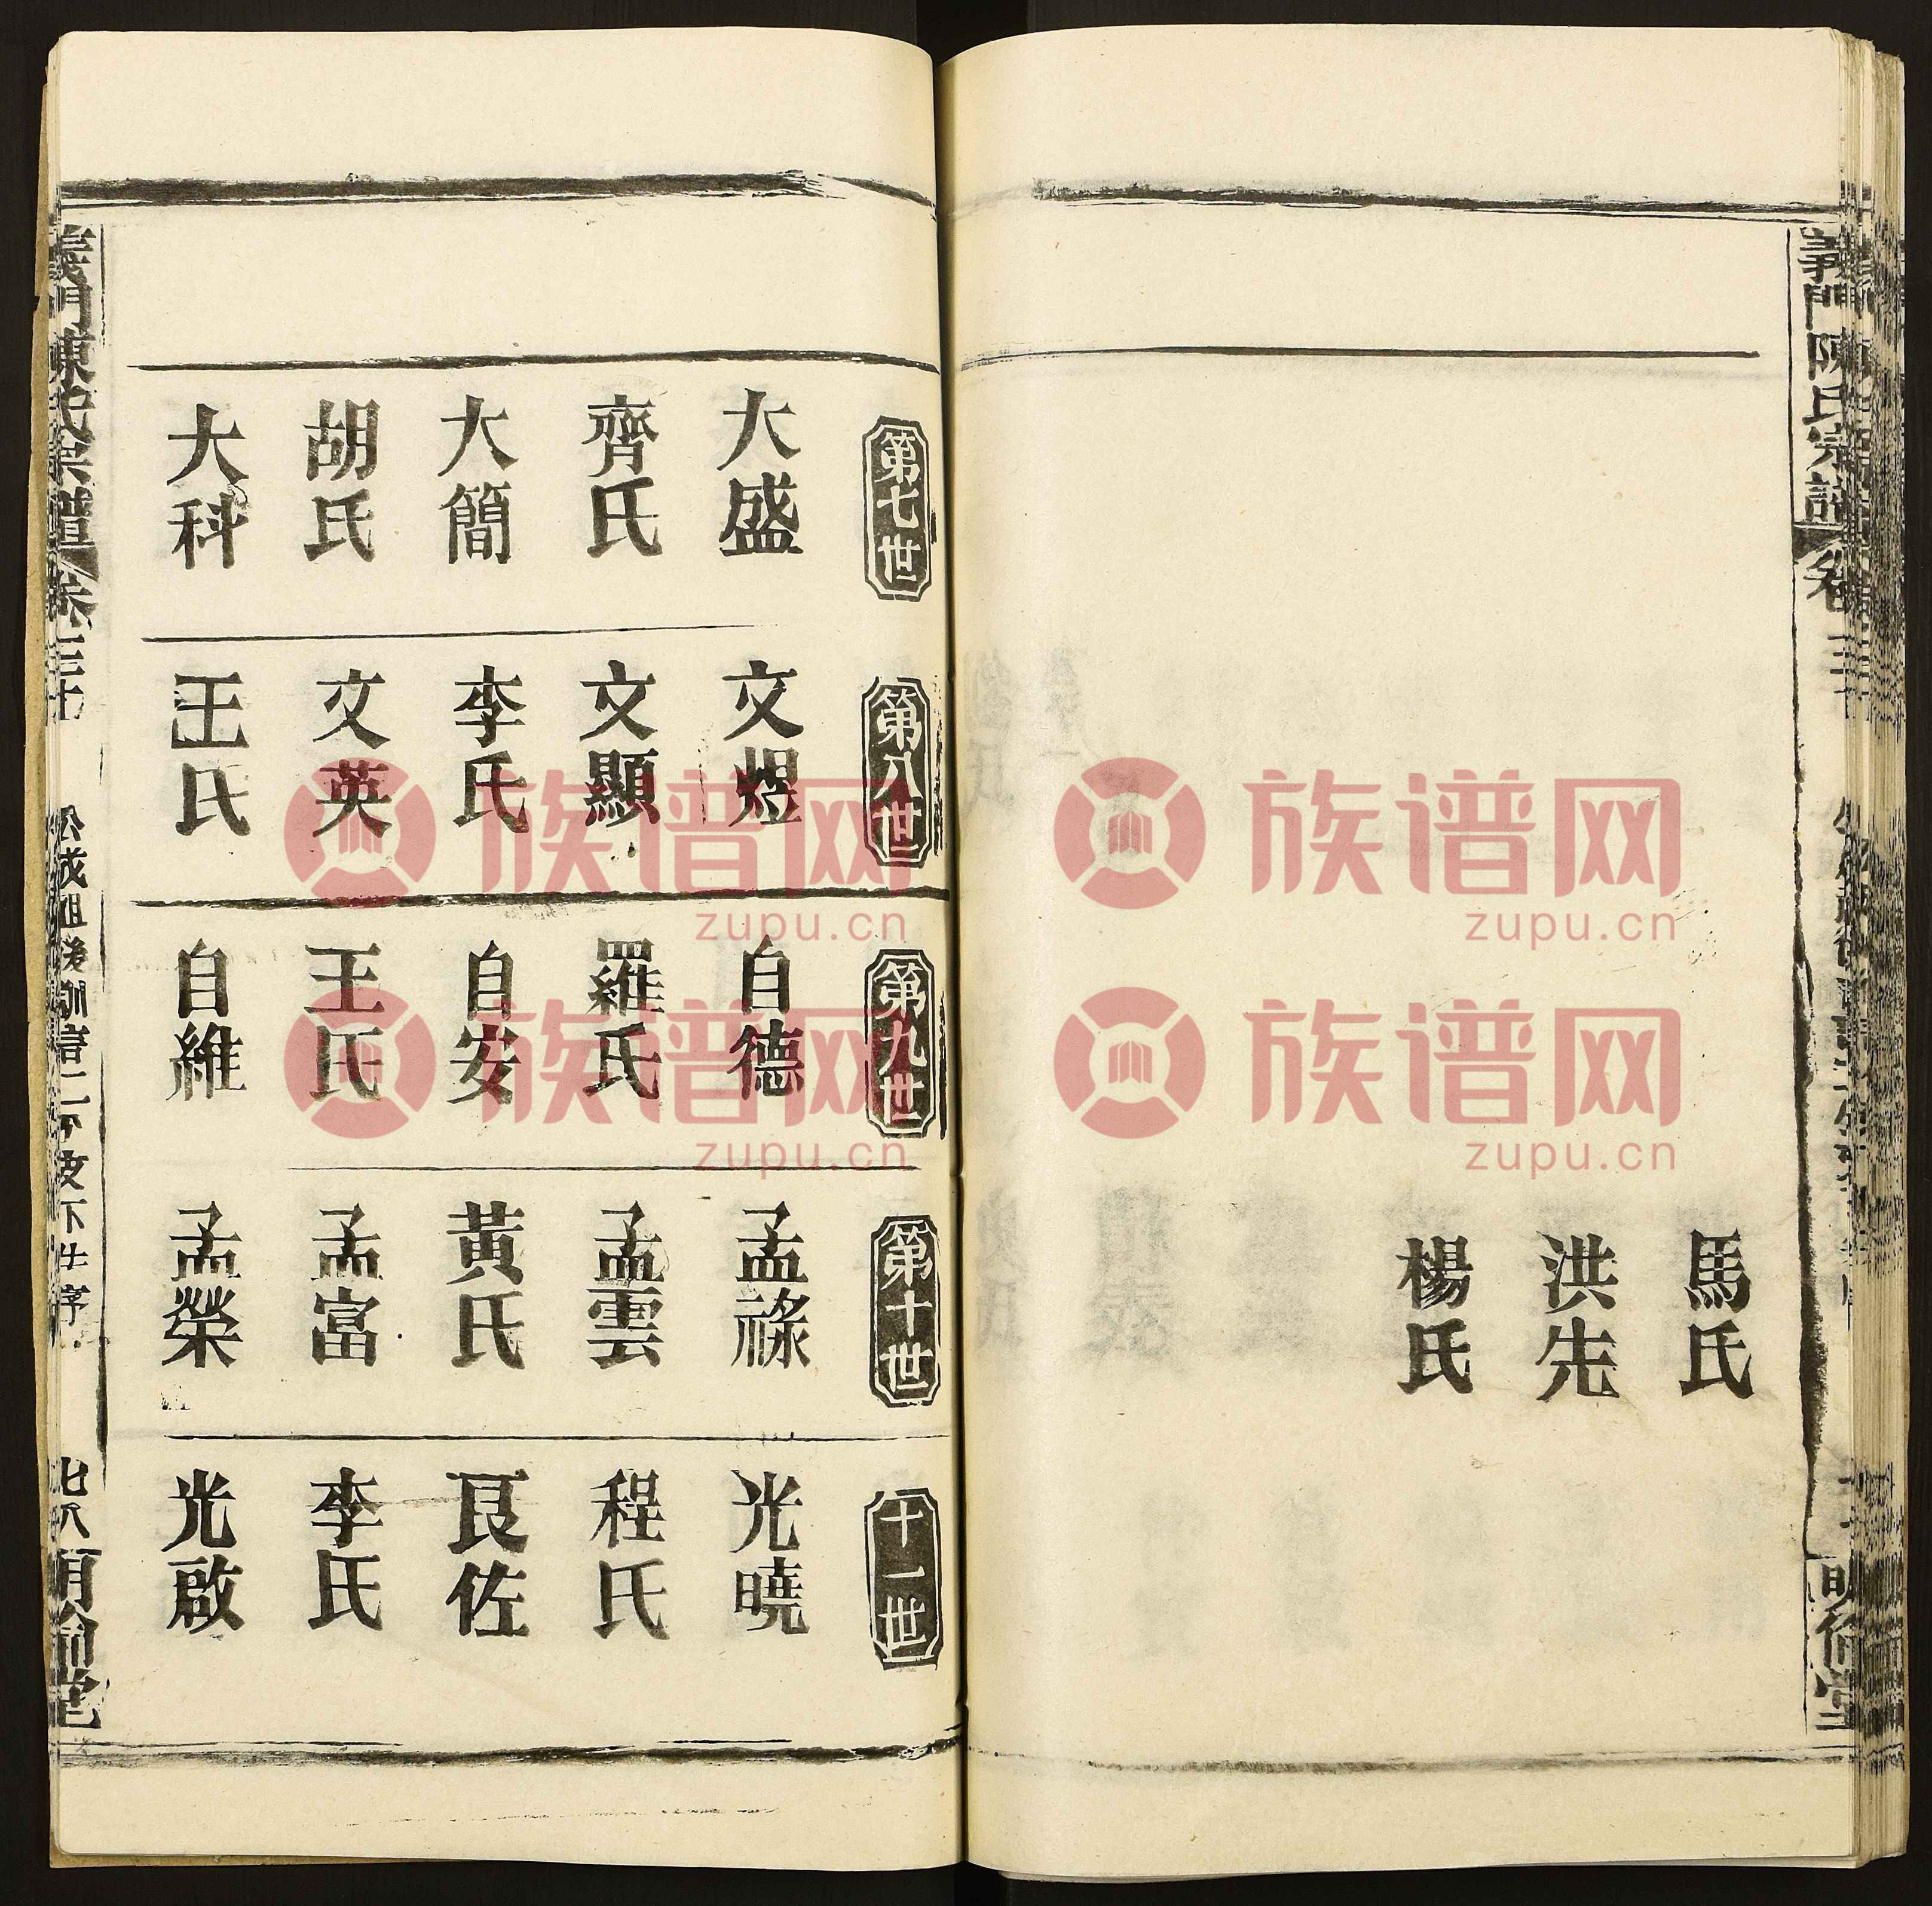 義門陳氏宗譜
卷
明倫堂
馬氏
洪先
楊氏
第七世
大盛
齊氏
大簡
胡氏
大科
第八世
文煜
文顯
李氏
文英
王氏
第九世
自德
羅氏
自安
王氏
自維
第十世
孟祿
孟雲
黃氏
孟富
孟榮
十一世
光曉
程氏
良佐
李氏
光啟
義門陳氏宗譜
族谱网
zupu.cn
族谱网
zupu.cn
族谱网
zupu.cn
族谱网
zupu.cn